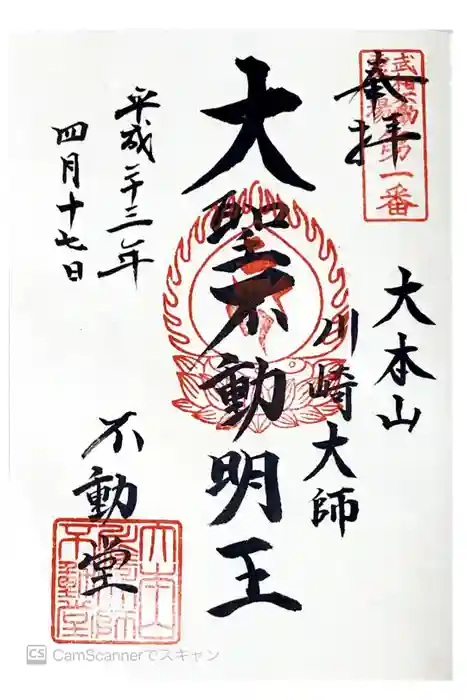 奉拝
武相不動
霊場第一番
大本山
川崎大師
大聖不動明王
平成二十三年
四月十七日
不動堂
大本山
川崎大師
不動堂
CS CamScannerでスキャン